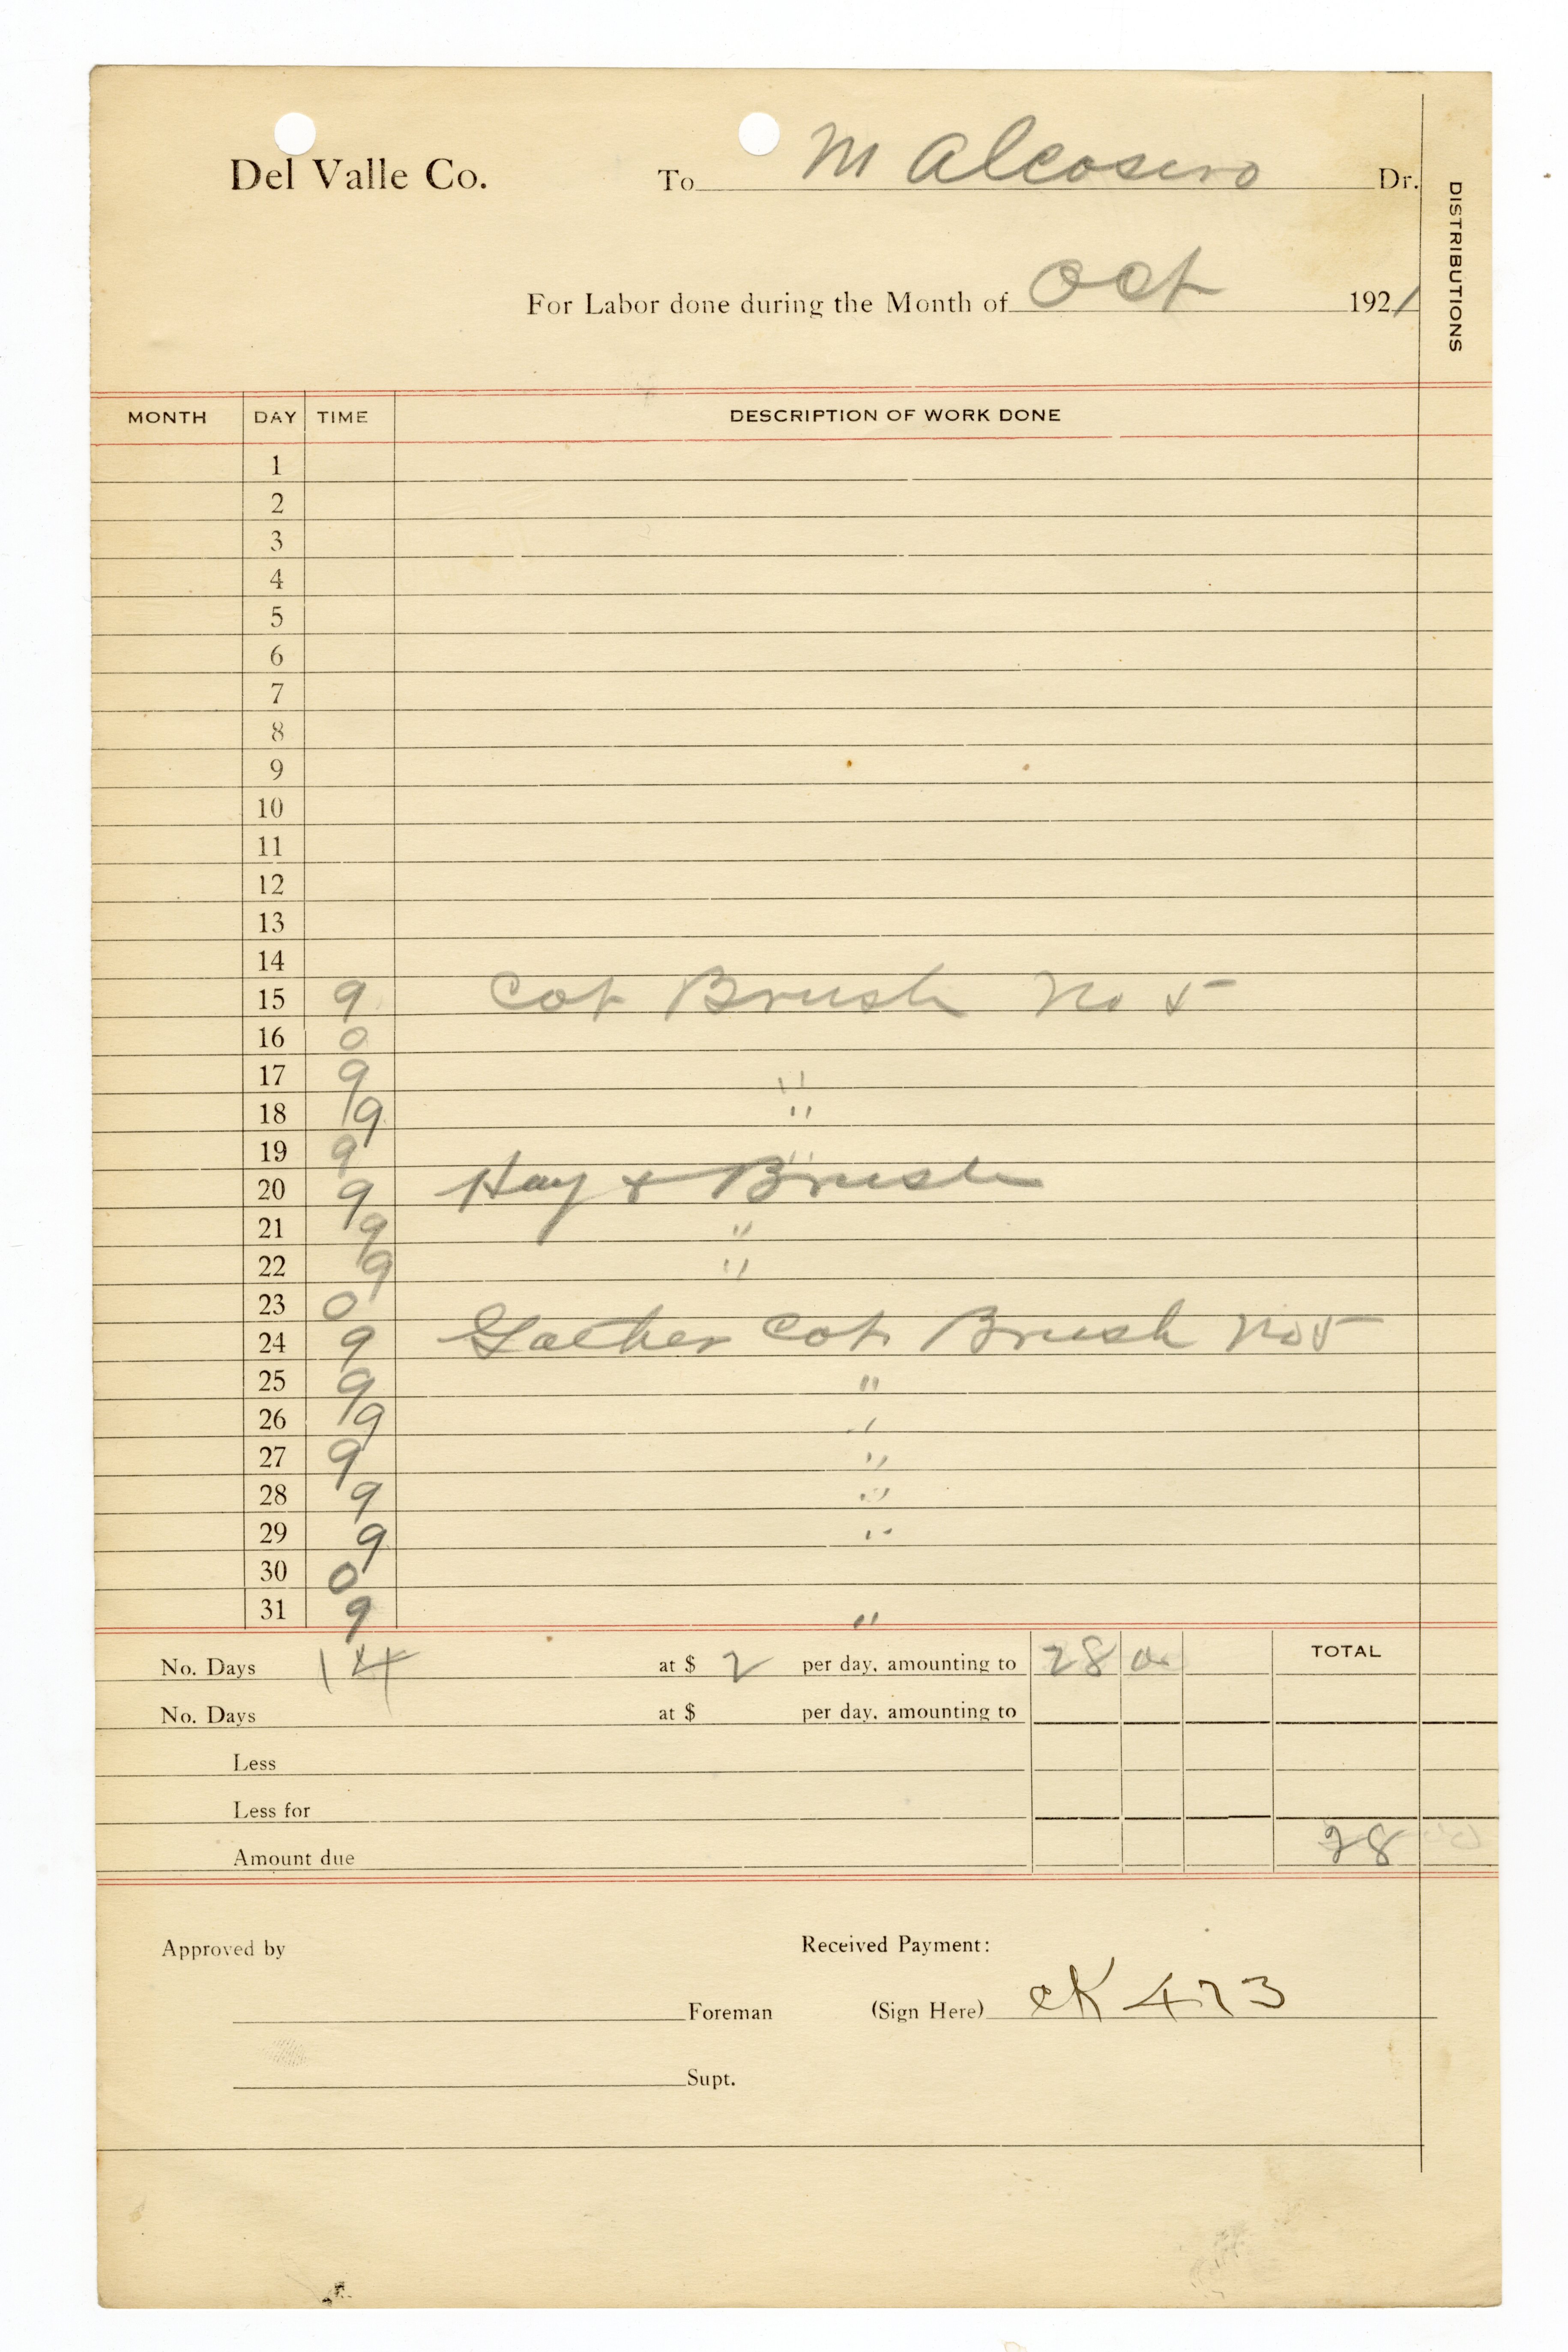 Del Valle Co. To M Alcosero Dr.
DISTRIBUTIONS
For Labor done during the Month of Oct 1921
MONTH DAY TIME DESCRIPTION OF WORK DONE
1
2
3
4
5
6
7
8
9
10
11
12
13
14
15 9 Cot Brush No 5
16 0
17 9 "
18 9 "
19 9 "
20 9 Hay + Brush
21 9 "
22 9 "
23 0
24 9 Gather Cot Brush No 5
25 9 "
26 9 "
27 9 "
28 9 "
29 9 "
30 0
31 9 "
No. Days 14 at $ 2 per day, amounting to 28 00 TOTAL
No. Days at $ per day, amounting to
Less
Less for
Amount due 28
Approved by Received Payment:
Foreman (Sign Here) CK 473
Supt.